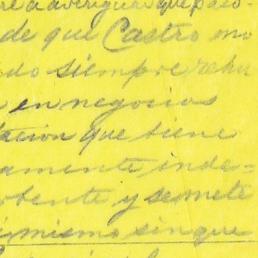 a averiguar que paso
de que Castro mo
do siempre rehu
en negocios
acion que tiene
amente inde-
y se mete
mismo sin que